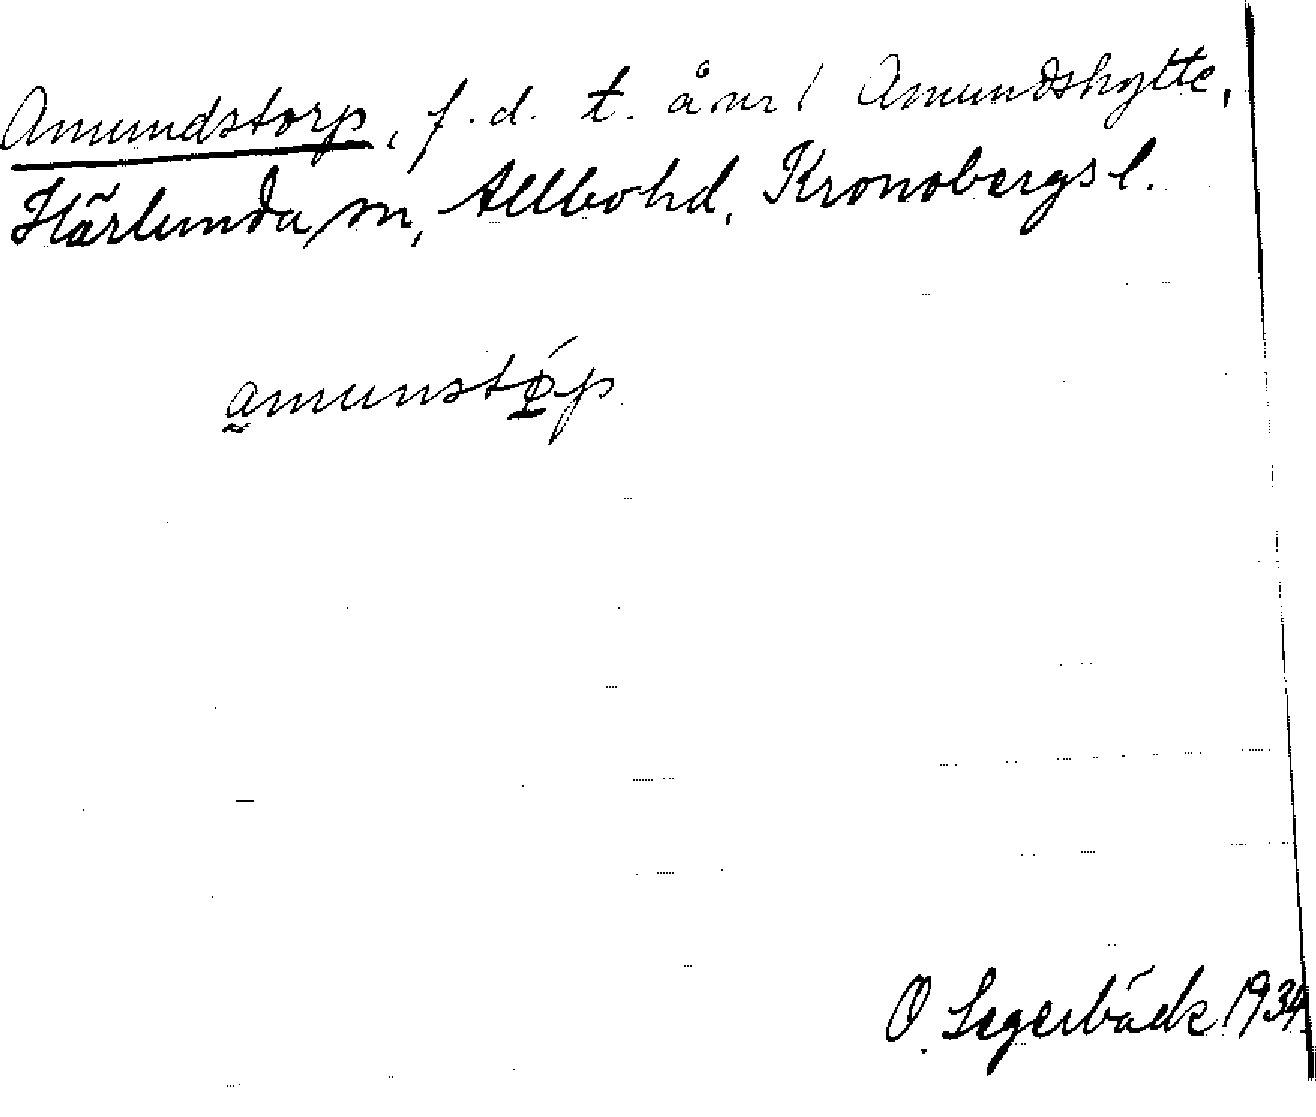 Amundstorp, f. d. t. å nr 1 Amundshytte,
Härlunda sn, Allbo hd, Kronobergs l.
amunstǿp
O. Segerbäck 1934